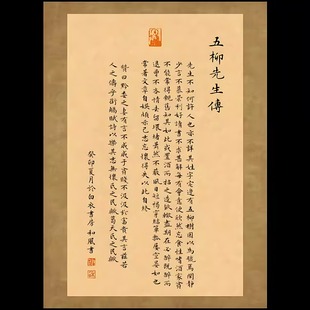 五柳先生傳
先生不知何許人也亦不詳其姓字宅邊有五柳樹因以為號焉閑靜
少言不慕榮利好讀書不求甚解每有會意便欣然忘食性嗜酒家貧
不能常得親舊知其如此或置酒而招之造飲輒盡期在必醉既醉而
退曾不吝情去留環堵蕭然不蔽風日短褐穿結簞瓢屢空晏如也
常著文章自娛頗示己志忘懷得失以此自終
贊曰黔婁之妻有言不戚戚于貧賤不汲汲於富貴其言茲若
人之儔乎銜觴賦詩以樂其志無懷氏之民歟葛天氏之民歟
癸卯夏月於白衣書房和風書